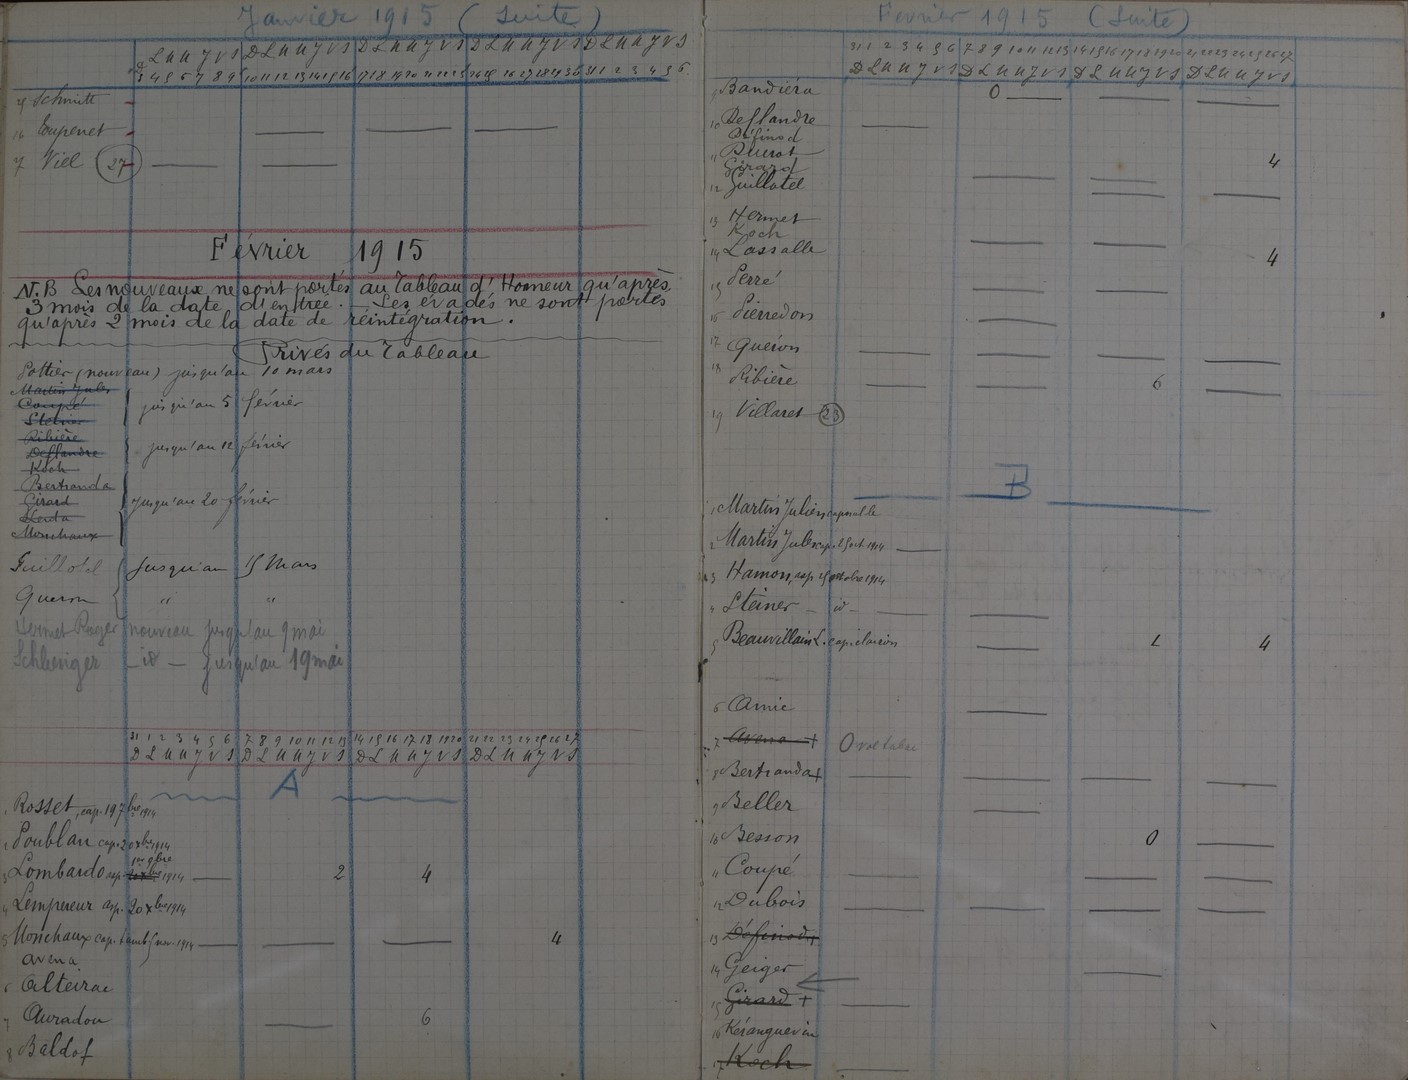 Janvier 1915 (Suite)
L M M J V S D L M M J V S D L M M J V S D L M M J V S D L M M J V S
15 Schmitt
16 Eupenet
17 Viel 27
Février 1915
N.B Les nouveaux ne sont portés au Tableau d'Honneur qu'après
3 mois de la date d'entrée. — Les évadés ne sont portés
qu'après 2 mois de la date de réintégration.
Privés du Tableau
Pottier (nouveau) jusqu'au 10 mars
Martin Jules
Coupé
Steiner
jusqu'au 5 février
Ribière
Deflandre
Koch
jusqu'au 12 février
Bertranda
Girard
Monchaux
jusqu'au 20 février
Guillotel jusqu'au 15 Mars
Queron " "
Hermet Roger nouveau jusqu'au 9 mai
Schlesiger — id — jusqu'au 19 mai
31 1 2 3 4 5 6 7 8 9 10 11 12 13 14 15 16 17 18 19 20 21 22 23 24 25 26 27
D L M M J V S D L M M J V S D L M M J V S D L M M J V S
A
1 Rosset, cap. 1914
2 Poublan cap. 1914
1er 9bre
3 Lombardo cap 1914 — 2 4
4 Lempereur cap. 20 xbre 1914
5 Monchaux cap. 5 nov. 1914 — — — 4
Avena
6 Alteirac
7 Auradou — 6
8 Baldof
Février 1915 (Suite)
31 1 2 3 4 5 6 7 8 9 10 11 12 13 14 15 16 17 18 19 20 21 22 23 24 25 26 27
D L M M J V S D L M M J V S D L M M J V S D L M M J V S
9 Bandiéra 0 — — —
10 Deflandre —
Définod
11 Plurot 4
Girard
12 Guillotel
13 Hermet
Koch
14 Lassalle — — 4
15 Perré — —
16 Pierredon —
17 Quéron — — — —
18 Ribière — — 6 —
19 Villaret 23
B
1 Martin Julien caporal
2 Martin Jules cap. 15 oct. 1914 —
3 Hamon, cap 15 octobre 1914
4 Steiner — id — — —
5 Beauvillain L. cap. clairon — L 4
6 Amic —
7 Avena + 0
8 Bertranda + — — — —
9 Beller —
10 Besson 0 —
11 Coupé — — —
12 Dubois — — — —
13 Définod +
14 Geiger —
15 Girard + —
16 Kéranguevin
17 Koch —